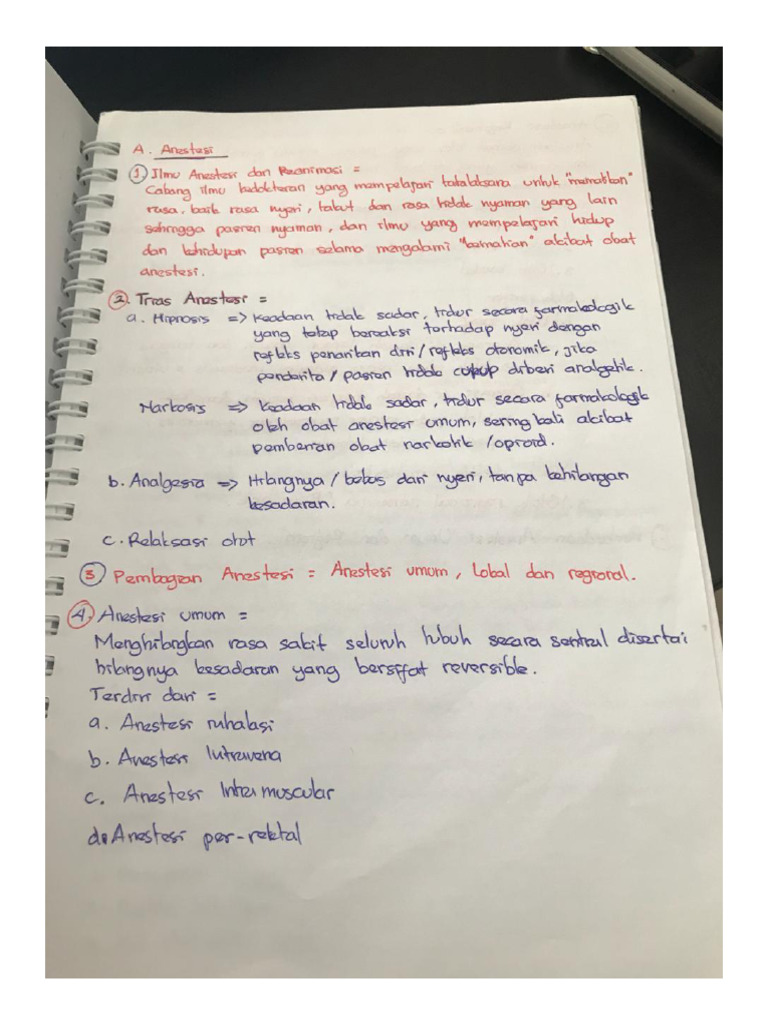 A. Anestesi
1. Ilmu Anestesi dan Reanimasi =
Cabang ilmu kedokteran yang mempelajari tatalaksana untuk "mematikan"
rasa, baik rasa nyeri, takut dan rasa tidak nyaman yang lain
sehingga pasien nyaman, dan ilmu yang mempelajari hidup
dan kehidupan pasien selama mengalami "kematian" akibat obat
anestesi.
2. Trias Anestesi =
a. Hipnosis => Keadaan tidak sadar, tidur secara farmakologik
yang tetap bereaksi terhadap nyeri dengan
refleks penarikan diri / refleks otonomik, jika
penderita / pasien tidak cukup diberi analgetik.
Narkosis => Keadaan tidak sadar, tidur secara farmakologik
oleh obat anestesi umum, seringkali akibat
pemberian obat narkotik / opioid.
b. Analgesia => Hilangnya / bebas dari nyeri, tanpa kehilangan
kesadaran.
c. Relaksasi otot
3 Pembagian Anestesi = Anestesi umum, Lokal dan regional.
4. Anestesi umum =
Menghilangkan rasa sakit seluruh tubuh secara sentral disertai
hilangnya kesadaran yang bersifat reversible.
Terdiri dari =
a. Anestesi inhalasi
b. Anestesi Intravena
c. Anestesi Intra muscular
d. Anestesi per-rektal